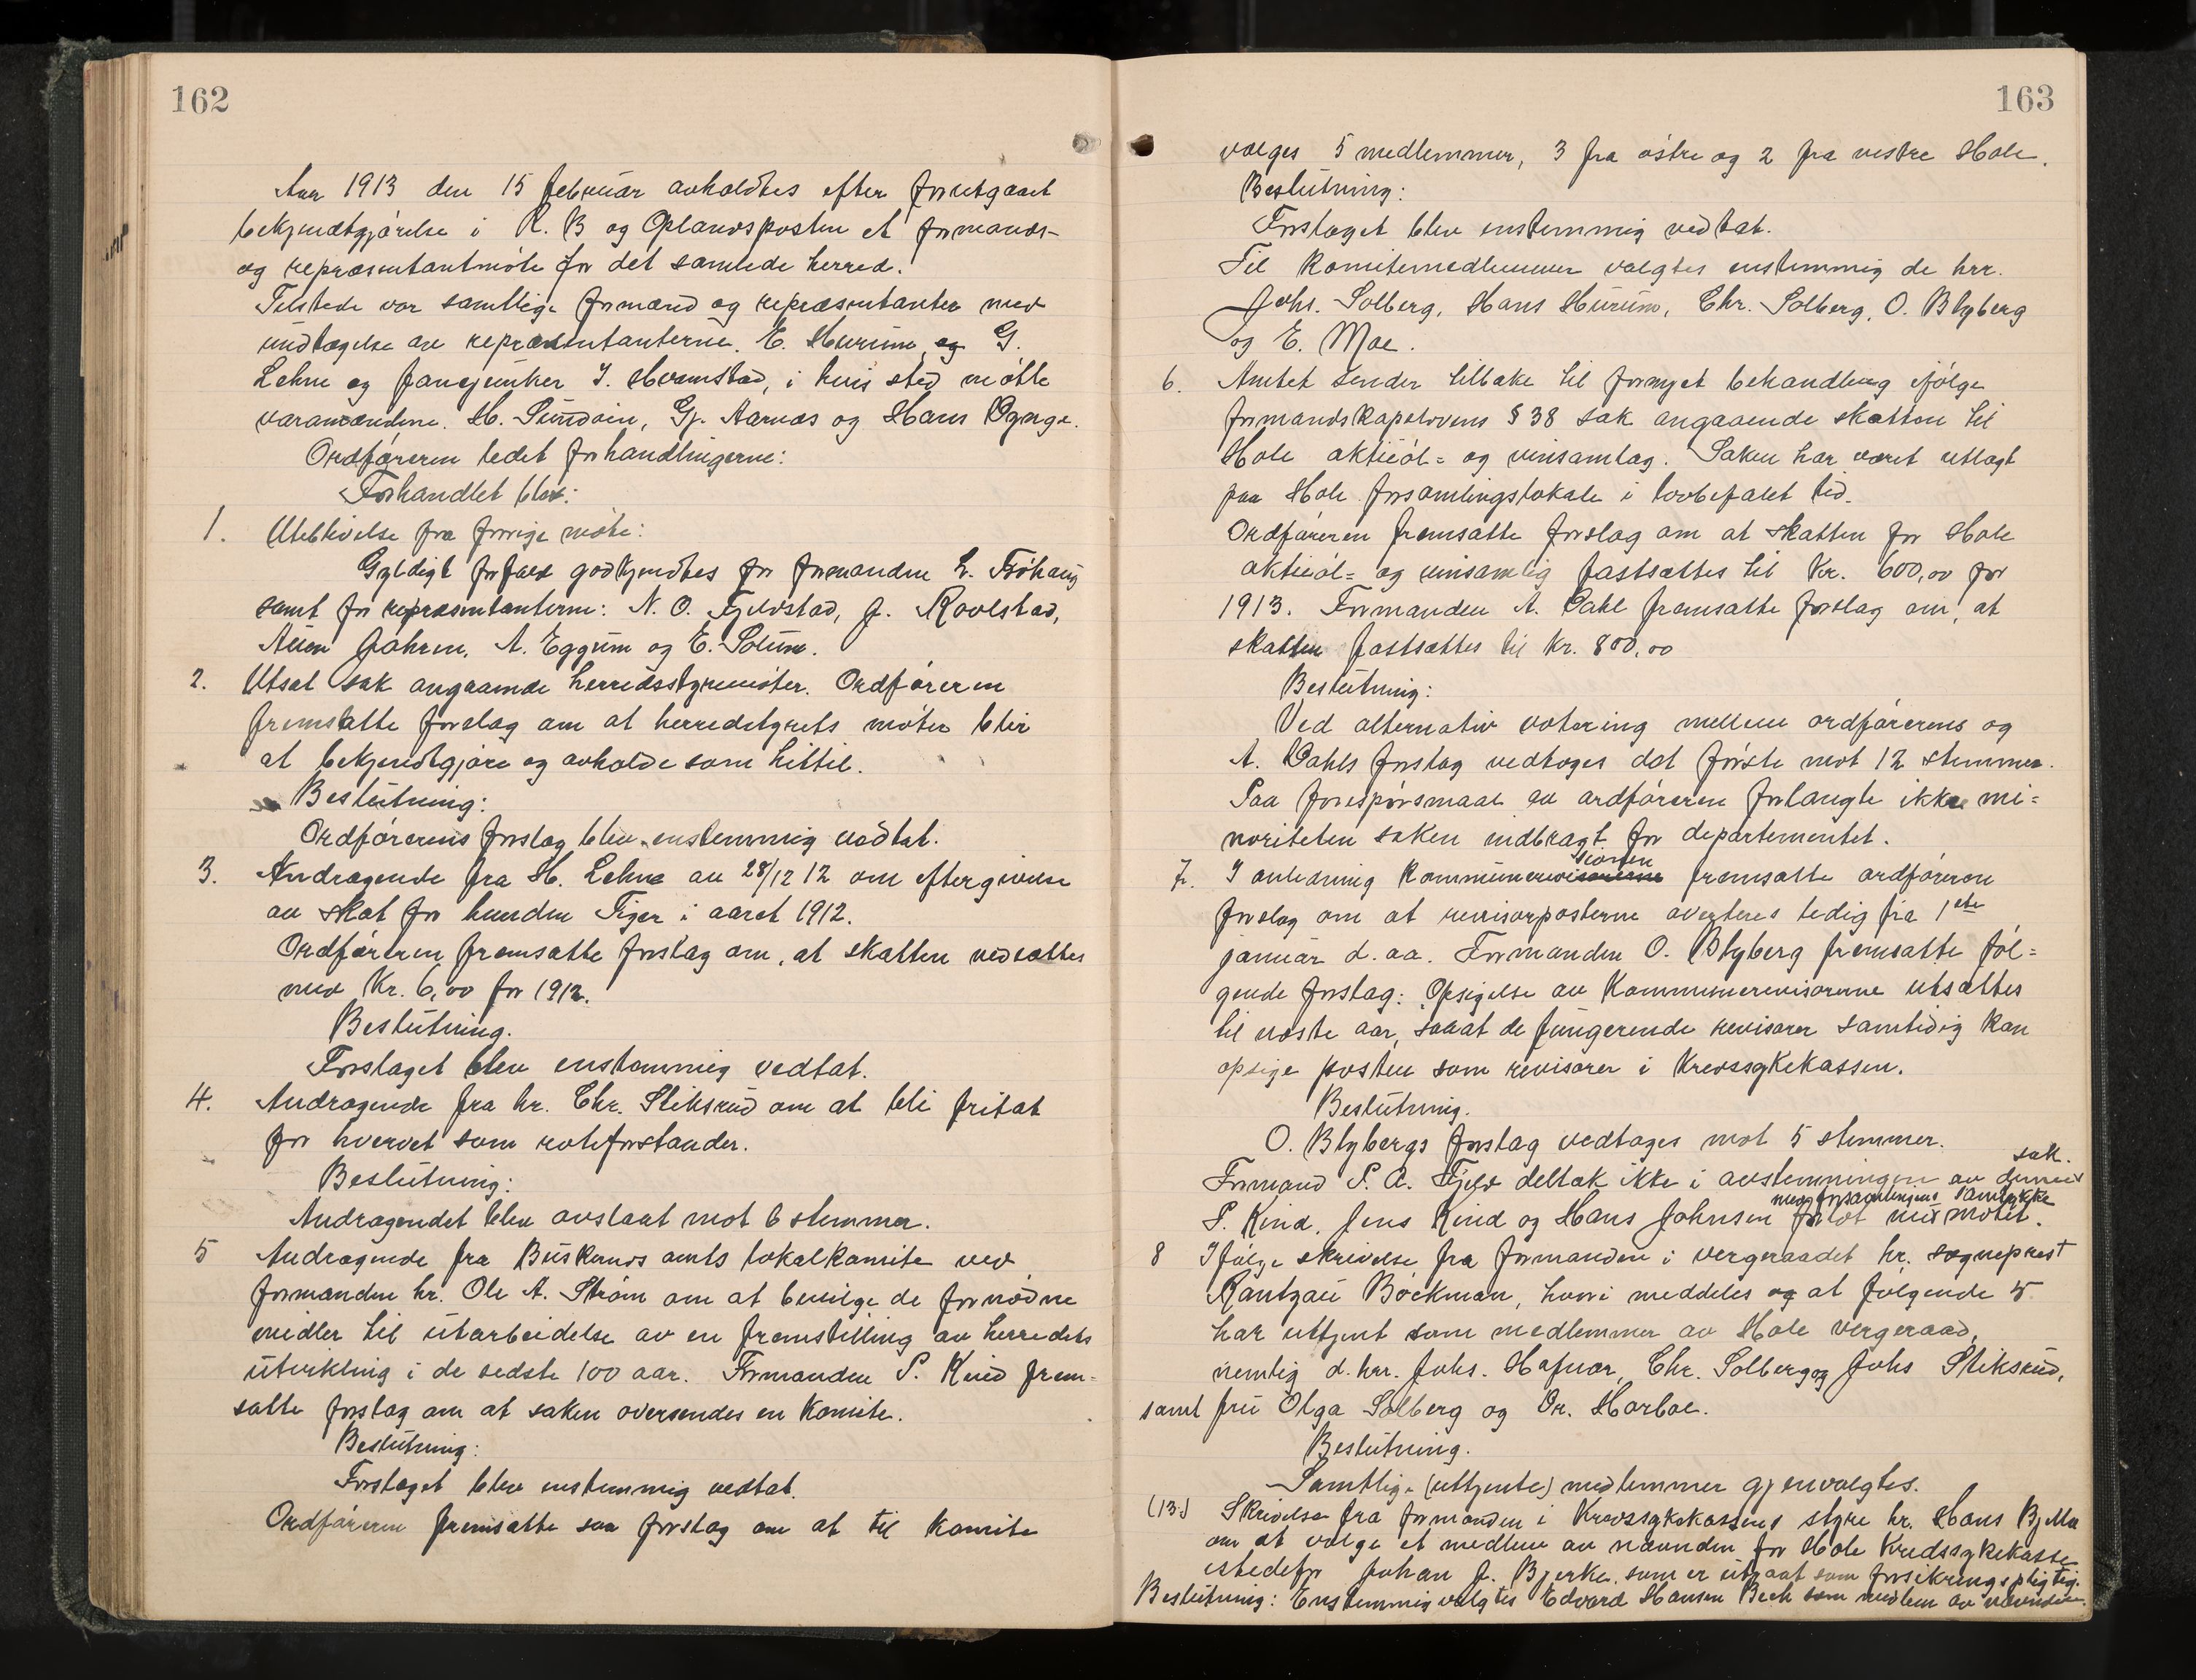 162
Aar 1913 den 15 februar avholdtes efter forutgaaet
bekjendtgjørelse i R. B og Oplandsposten et formands-
og repræsentantmøte for det samlede herred.
Tilstede var samtlige formænd og repræsentanter med
undtagelse av repræsentanterne. E. Hurum og G.
Lehne og fanejunker J. Hvamstad, i hvis sted møtte
varamændene. H. Sundøen, Gj. Aarnæs og Hans Dynge.
Ordføreren ledet forhandlingerne:
Forhandlet blev:
1. Uteblivelse fra forrige møte:
Gyldigt forfald godkjendtes for formanden L. Frøhaug
samt for repræsentanterne: N. O. Fjeldstad, J. Rolstad,
Gahren, A. Eggum og E. Solum.
2. Utsat sak angaaende herredsstyremøter. Ordføreren
fremsatte forslag om at herredstyrets møter blir
at bekjendtgjøre og avholde som hittil.
Beslutning:
Ordførerens forslag blev enstemmig vedtat.
3. Andragende fra H. Lehne av 28/12 12 om eftergivelse
av skat for hunden Tiger i aaret 1912.
Ordføreren fremsatte forslag om, at skatten nedsættes
med Kr. 6,00 for 1912.
Beslutning.
Forslaget blev enstemmig vedtat.
4. Andragende fra hr. Chr. Sliksrud om at bli fritat
for hvervet som roteforstander.
Beslutning:
Andragendet blev avslaat mot 6 stemmer.
5 Andragende fra Buskeruds amts lokalkomite ved
formanden hr. Ole A. Strøm om at bevilge de fornødne
midler til utarbeidelse av en fremstilling av herredets
utvikling i de sidste 100 aar. Formanden P. Kind frem-
satte forslag om at saken oversendes en komite.
Beslutning:
Forslaget blev enstemmig vedtat.
Ordføreren fremsatte saa forslag om at til komite
163
vælges 5 medlemmer, 3 fra østre og 2 fra vestre Hole.
Beslutning:
Forslaget blev enstemmig vedtat.
Til komitemedlemmer valgtes enstemmig de hrr.
Johs. Solberg, Hans Hurum, Chr. Solberg, O. Blyberg
og E. Moe.
6. Amtet sender tilbake til fornyet behandling ifølge
formandskapslovens § 38 sak angaaende skatten til
Hole aktieøl- og vinsamlag. Saken har været utlagt
paa Hole forsamlingslokale i lovbefalet tid.
Ordføreren fremsatte forslag om at skatten for Hole
aktieøl- og vinsamlag fastsættes til Kr. 600,00 for
1913. Formanden A. Dahl fremsatte forslag om, at
skatten fastsættes til Kr. 800,00
Beslutning:
Ved alternativ votering mellem ordførerens og
A. Dahls forslag vedtoges det første mot 12 stemmer.
Paa forespørsmaal av ordføreren forlangte ikke mi-
noriteten saken indbragt for departementet.
sionen
7. I anledning kommunerevisorerne fremsatte ordføreren
forslag om at revisorposterne averteres ledig fra 1ste
januar d. aa. Formanden O. Blyberg fremsatte føl-
gende forslag: Opsigelse av Kommunerevisorerne utsættes
til næste aar, saaat de fungerende revisorer samtidig kan
opsige posten som revisorer i Kredssykekassen.
Beslutning.
O. Blybergs forslag vedtoges mot 5 stemmer.
sak.
Formand P. A. Fjeld deltok ikke i avstemningen av denne
med forsamlingens samtykke
P. Kind, Jens Kind og Hans Johnsen forlot nu møtet.
8 Ifølge skrivelse fra formanden i vergeraadet hr. sogneprest
Rantzau Bøckman, hvori meddeles og at følgende 5
har uttjent som medlemmer av Hole vergeraad,
nemlig d. hrr. Johs. Hafnor, Chr. Solberg og Johs Sliksrud,
samt fru Olga Solberg og Dr. Harboe.
Beslutning.
Samtlige (uttjente) medlemmer gjenvalgtes.
(13.) Skrivelse fra formanden i Kredssykekassens styre hr. Hans Bjella
om at vælge et medlem av nævnden for Hole Kredssykekasse
istedefor Johan J. Bjerke, som er utgaat som forsikringspligtig.
Beslutning: Enstemmig valgtes Edvard Hansen Bech som medlem av nævnden.